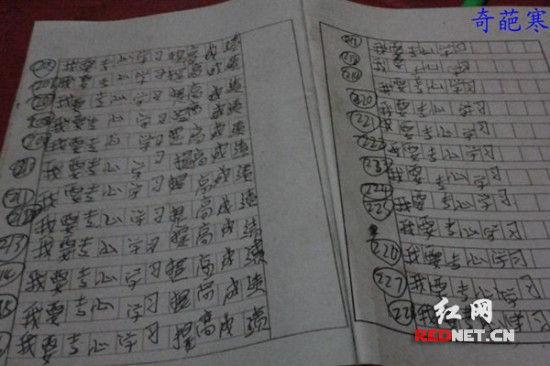 奇葩寒
我要专心学习提高成绩
我要专心学习提高成绩
我要专心学习提高成绩
我要专心学习提高成绩
我要专心学习提高成绩
我要专心学习提高成绩
211 我要专心学习提高成绩
212 我要专心学习提高成绩
213 我要专心学习提高成绩
14 我要专心学习提高成绩
我要专心学习提高成绩
我要专心学习提高成绩
217 我要专心学习
218 我要专心学习
219 我要专心学习
220 我要专心学习
221 我要专心学习
222 我要专心学习
223 我要专心学习
224 我要专心学习
225 我要专心学习
我要专心学习
226 我要专心学习
227 我要专心学习
我要专心学习
红网
REDNET.CN